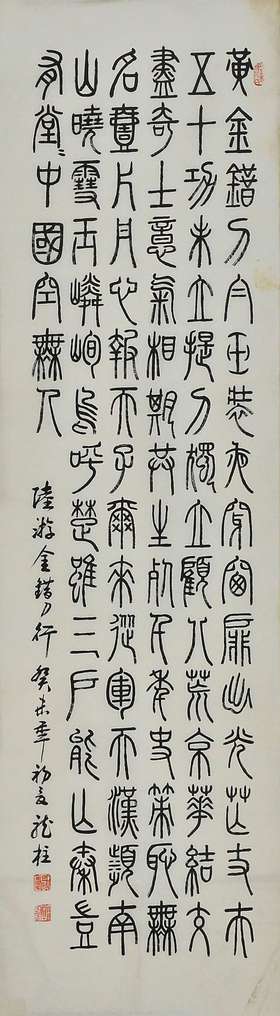 黃金錯刀白玉裝夜穿窗扉出光芒丈夫
五十功未立提刀獨立顧八荒京華結交
盡奇士意氣相期共生死千年史策恥無
名壹片丹心報天子爾來從軍天漢瀕南
山曉雪玉嶙峋烏呼楚雖三戶能亡秦豈
有堂〻中國空無人
陸游金錯刀行 癸未年初夏龍柱